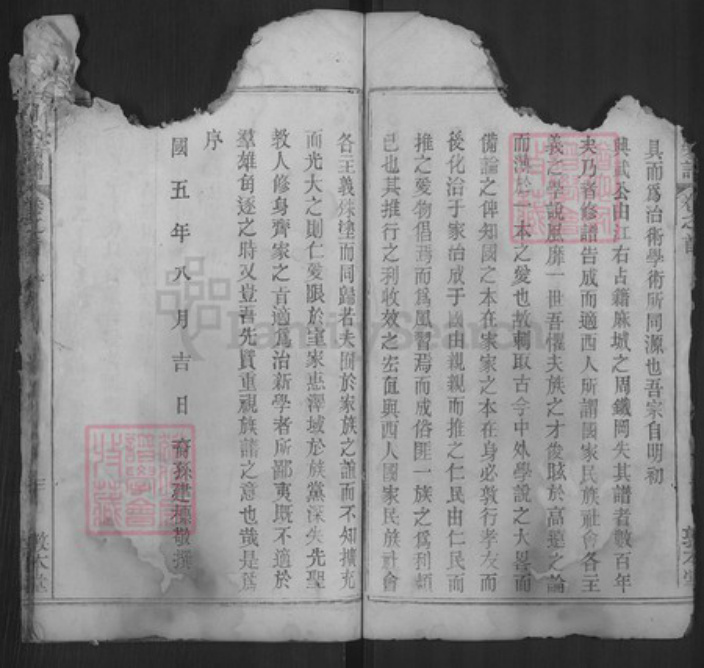 具而爲治術學術所同源也吾宗自明初
興武公由江右占籍麻城之周鐵岡失其譜者數百年
夫乃者修譜告成而適西人所謂國家民族社會各主
義之學說風靡一世吾懼夫族之才俊眩於高遠之論
而漠於一本之愛也故輒取古今中外學說之大畧而
備論之俾知國之本在家家之本在身必敦行孝友而
後化洽于家治成于國由親親而推之仁民由仁民而
推之愛物倡焉而爲風習焉而成俗匪一族之爲利頼
已也其推行之利收效之宏直與西人國家民族社會
各主義殊塗而同歸若夫囿於家族之誼而不知擴充
而光大之則仁愛限於室家惠澤域於族黨深失先聖
教人修身齊家之旨適爲治新學者所鄙夷既不適於
羣雄角逐之時又豈吾先賢重視族譜之意也哉是爲
序
國五年八月吉日裔孫建標敬撰
敦本堂
卷之首
FamilySearch